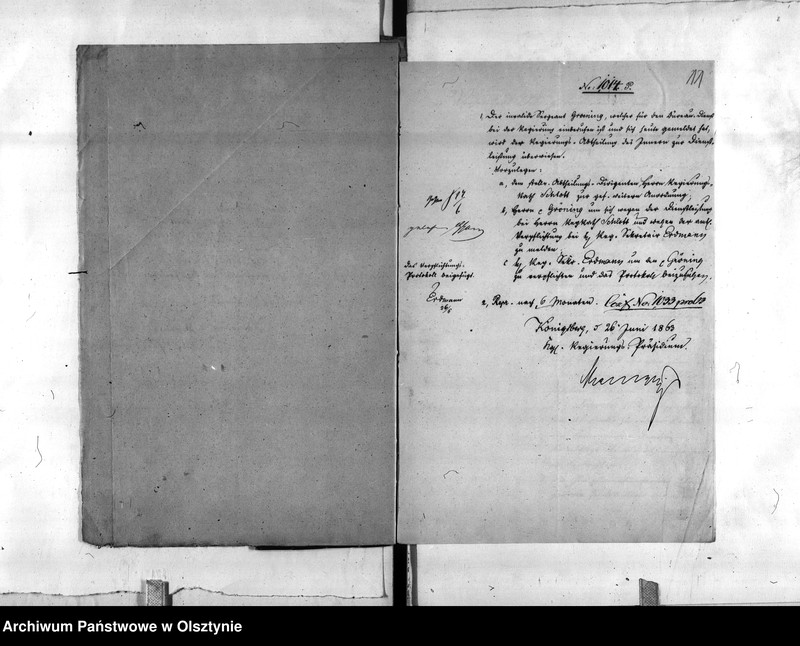 11
No. 1014. P.
1, Der invalide Sergeant Groening, welcher für den Bureau-Dienst
bei der Regierung einberufen ist und sich heute gemeldet hat,
wird der Regierungs-Abtheilung des Innern zur Dienst-
leistung überwiesen.
Vorzulegen:
a, dem stellv. Abtheilungs-Dirigenten, Herrn Regierungs-
Rath Schlott zur gef. weitern Anordnung,
b, Herrn Gröning um sich wegen der Dienstleistung
bei Herrn RegRath Schlott und wegen der
Verpflichtung bei Reg. Sekretair Erdmann
zu melden
c Reg. Sekr. Erdmann um Gröning
zu verpflichten und das Protokoll beizufügen.
17/6
Das Verpflichtungs-
Protokoll beigefügt.
Erdmann
26/6
2, Repr. nach 6 Monaten. No. 1033
Königsberg, d 26 Juni 1863
Kgl. Regierungs-Präsidium.
Archiwum Państwowe w Olsztynie